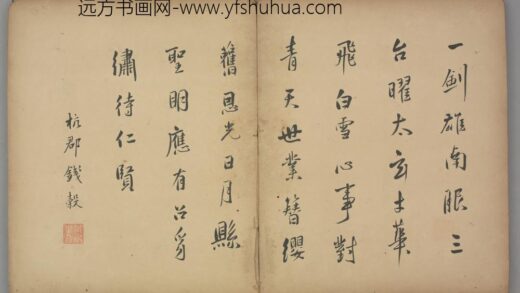 远方书画网-www.yfshuhua.com
一劍雄南服三
台曜太玄才華
飛白雪心事對
青天世業簪纓
舊恩光日月縣
聖明應有召豸
繡待仁賢
杭郡錢穀